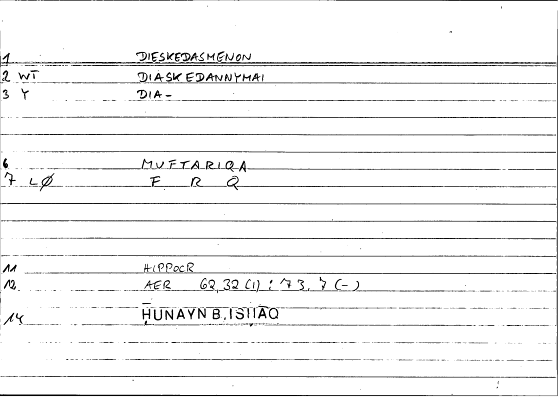 1 DIESKEDASMENON
2 WT DIASKEDANNYMAI
3 Y DIA-
6 MUFTARIQA
7 LØ F R Q
11 HIPPOCR
12 AER 62,32 (1) : 73,7 (-)
14 ḤUNAYN B. ISḤĀQ